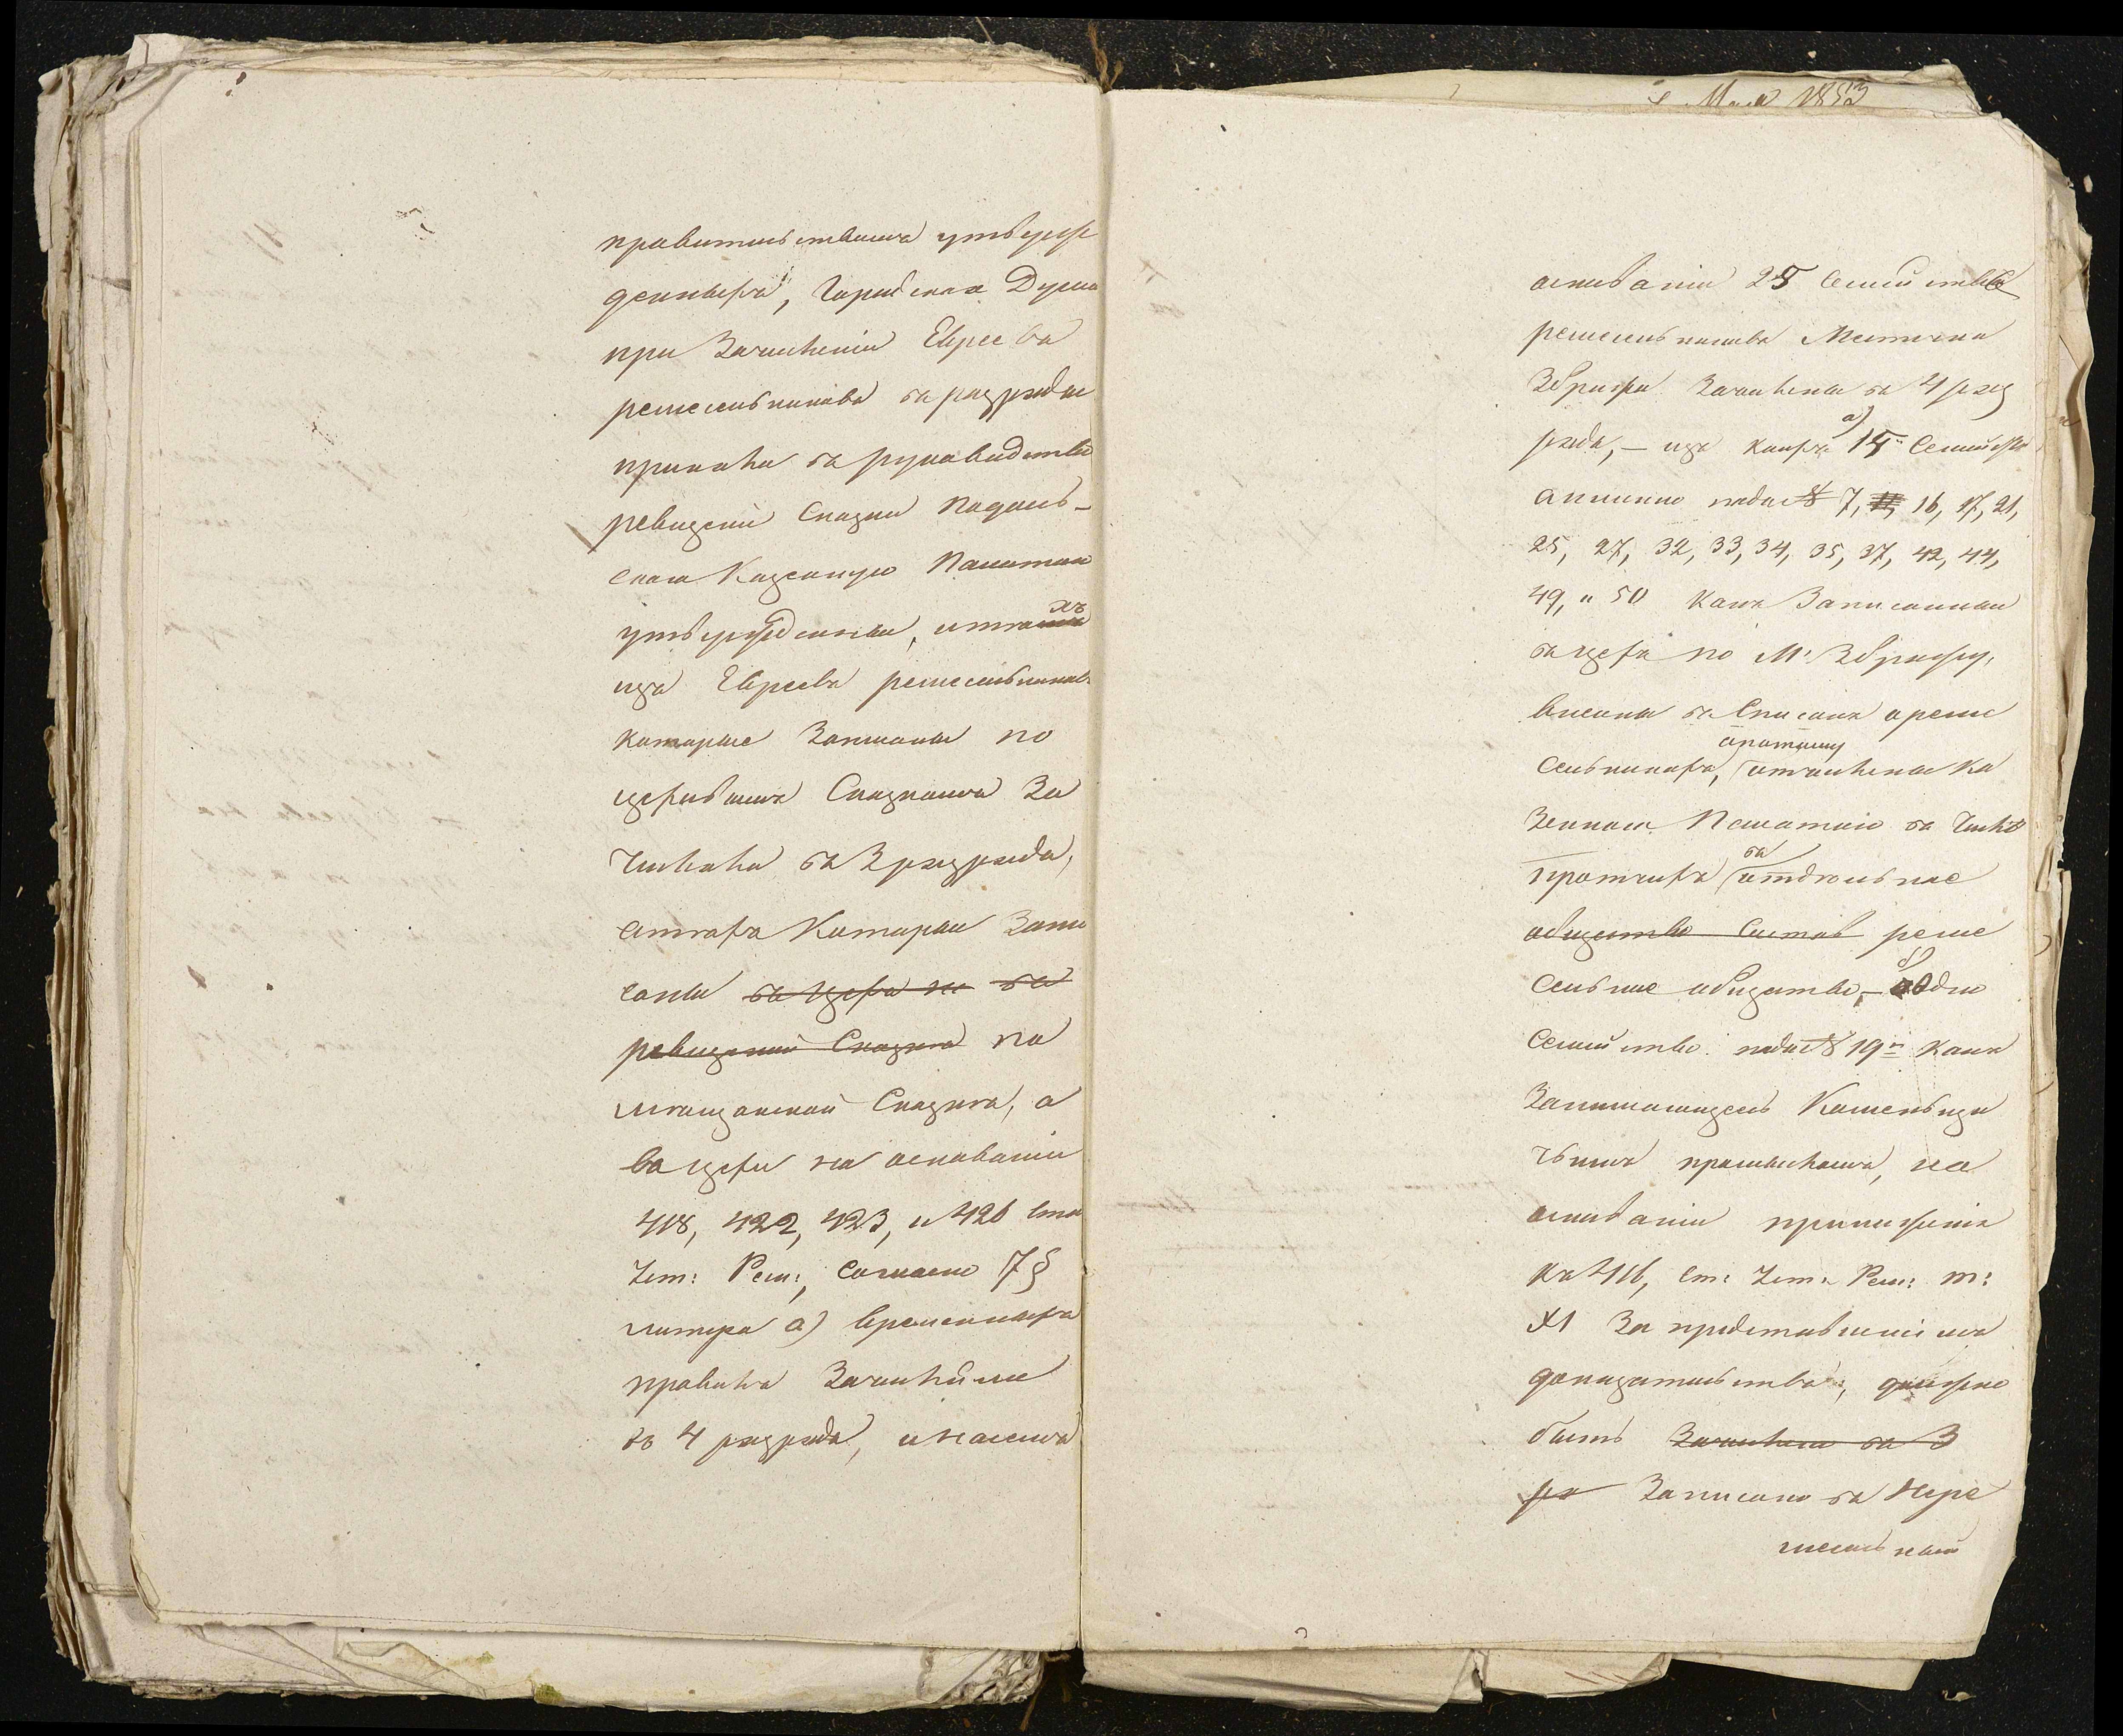 правительствомъ утверж
денныхъ, Городская Дума
при Зачисленіи Евреевъ
ремесленниковъ въ разряды
приняла въ руководство
ревизскія Сказки Подоль-
скою Казенную Палатою
утвержденныя, и тѣхъ
изъ Евреевъ ремесленниковъ
которые Записаны по
цеховымъ Сказкамъ За
числила въ 3 разрядъ,
а тѣхъ Которыи Запи
саны въ цехъ не въ
ревизской Сказкѣ по
мѣщанской Сказкѣ, а
въ цехи на основаніи
418, 422, 423, и 426 ста
Уст: Рем:, Согласно 7 §
литера а) временныхъ
правилъ Зачислила
въ 4 разрядъ, и на семъ
Мая 1853
основаніи 25 Семействъ
ремесленниковъ Мѣстечка
Збрижа Зачислены въ 4 раз
рядъ, – изъ коихъ а) 15 Семействъ
а именно подъ № 7, 11, 16, 17, 21,
25, 27, 32, 33, 34, 35, 37, 42, 44,
49, и 50 какъ Записанныи
въ цехъ по М: Збрижу,
внесены въ Списокъ о реме
сленникахъ, а потому отчислены Ка
Зенною Палатою въ Числѣ
Протчихъ въ отдельные
общество Состав реме
сленые общество, – б) Одно
Семейство подъ № 19й какъ
Занимающеесь Каменьщи
чьимъ промысломъ, на
основаніи примѣчанія
Къ 416, ст: Уст: Рем: т:
XI За представленіемъ
доказательствъ, должно
быть Зачислено въ 3
ра Записано въ Нере
месленный